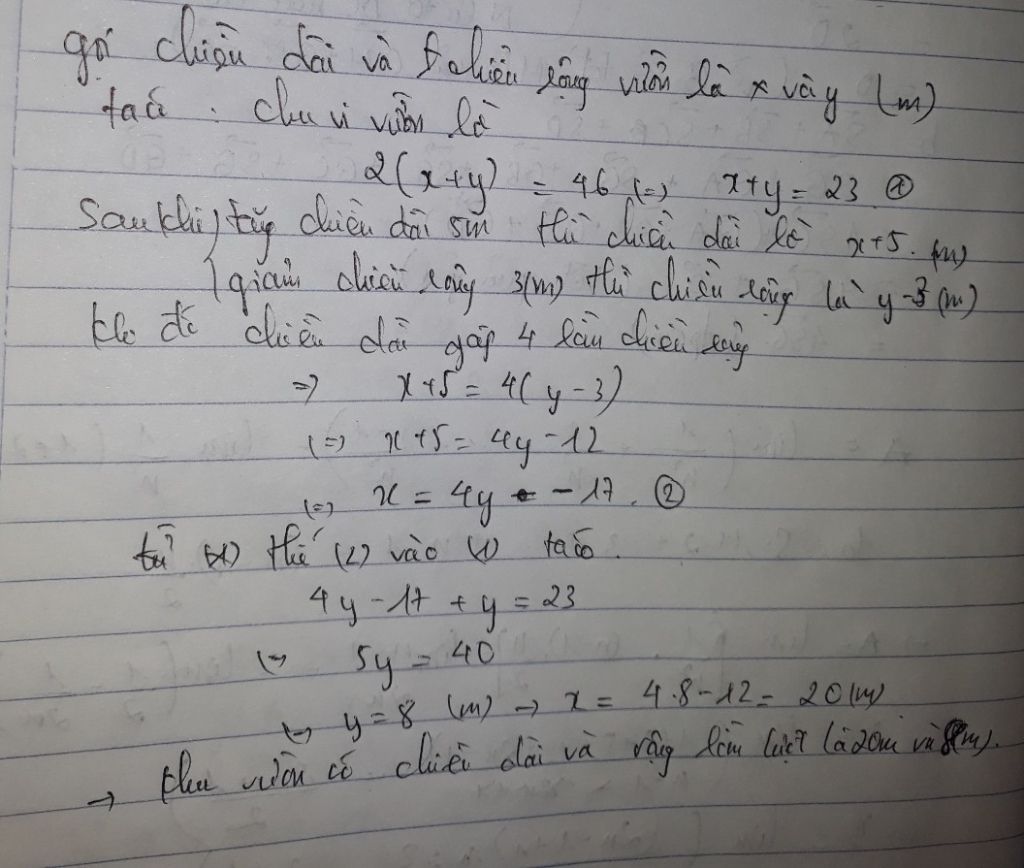 gọi chiều dài và chiều rộng vườn là x và y (m)
ta có : chu vi vườn là
2(x+y) = 46 (=) x+y = 23 ①
Sau khi tăng chiều dài 5m thì chiều dài là x+5. (m)
giảm chiều rộng 3(m) thì chiều rộng là y-3 (m)
khi đó chiều dài gấp 4 lần chiều rộng
=) x+5 = 4( y - 3)
(=) x+5 = 4y -12
(=) x = 4y - 17. ②
từ (1) thế (2) vào (1) ta có.
4y - 17 + y = 23
(=) 5y = 40
(=) y = 8 (m) → x = 4.8 - 12 = 20 (m)
→ khu vườn có chiều dài và rộng lần lượt là 20m và 8(m).